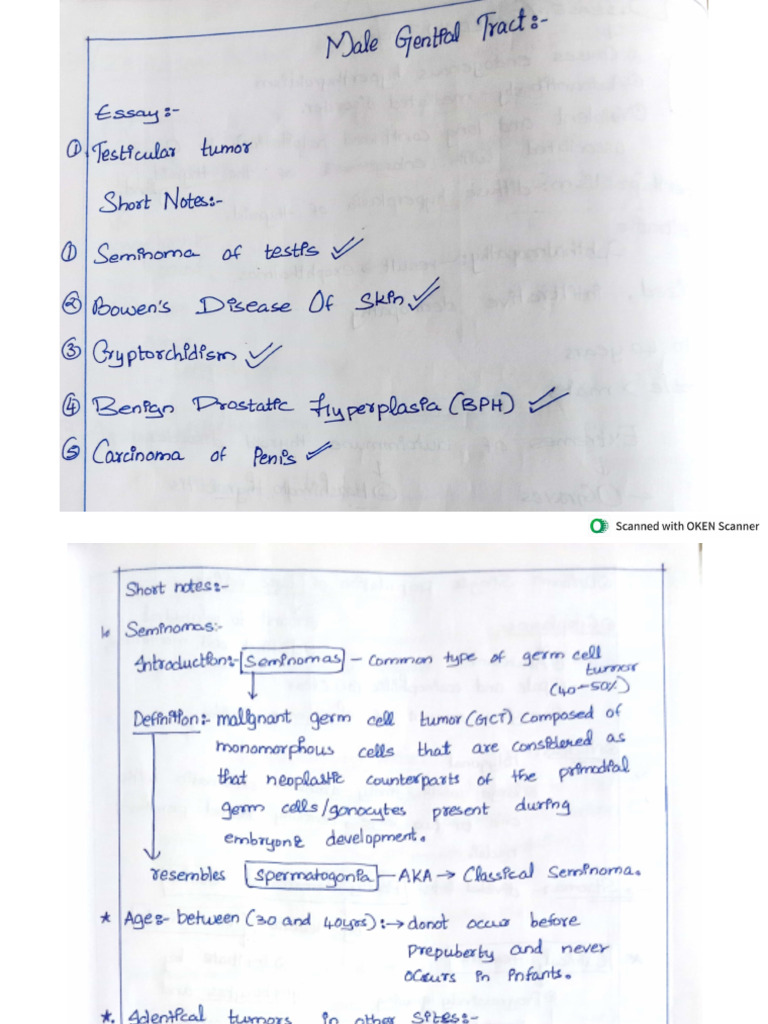 Male Genital Tract:-
Essay:-
① Testicular tumor
Short Notes:-
① Seminoma of testis ✓
② Bowen's Disease Of Skin ✓
③ Cryptorchidism ✓
④ Benign Prostatic Hyperplasia (BPH) ✓
⑤ Carcinoma of Penis ✓
Scanned with OKEN Scanner
Short notes:-
Seminomas:-
Introduction:- Seminomas - Common type of germ cell
tumor
(40-50%)
Definition:- malignant germ cell tumor (GCT) composed of
monomorphous cells that are considered as
that neoplastic counterparts of the primodial
germ cells/gonocytes present during
embryonic development.
resembles Spermatogonia - AKA → Classical Seminoma.
* Age:- between (30 and 40yrs):→ donot occur before
Prepuberty and never
occurs in infants.
*. Identical tumors in other sites:-